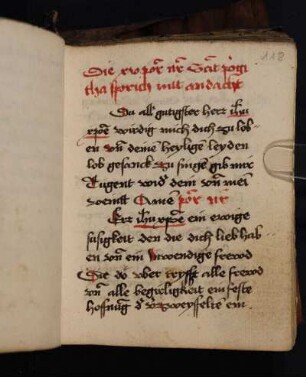 118
Die xv pr̄ nr̄ Sāt pgi
tha sprich mit andacht
Du all gutigster herr ih̄u
xp̄e wirdig mich dich zu lob
en vn̄ deine heylige leyden
lob gesanck zu singē gib mir
Tugent wid̕ dein vn̄ mei
veindt Amē pr̄ nr̄
Herr ih̄u xp̄e ein ewige
susigkeit den die dich lieb hab
en vn̄ ein Inwendige frewd
Die do vber trifft alle frewd
vn̄ alle begirligkeit ein feste
hoffnūg d̕ ein